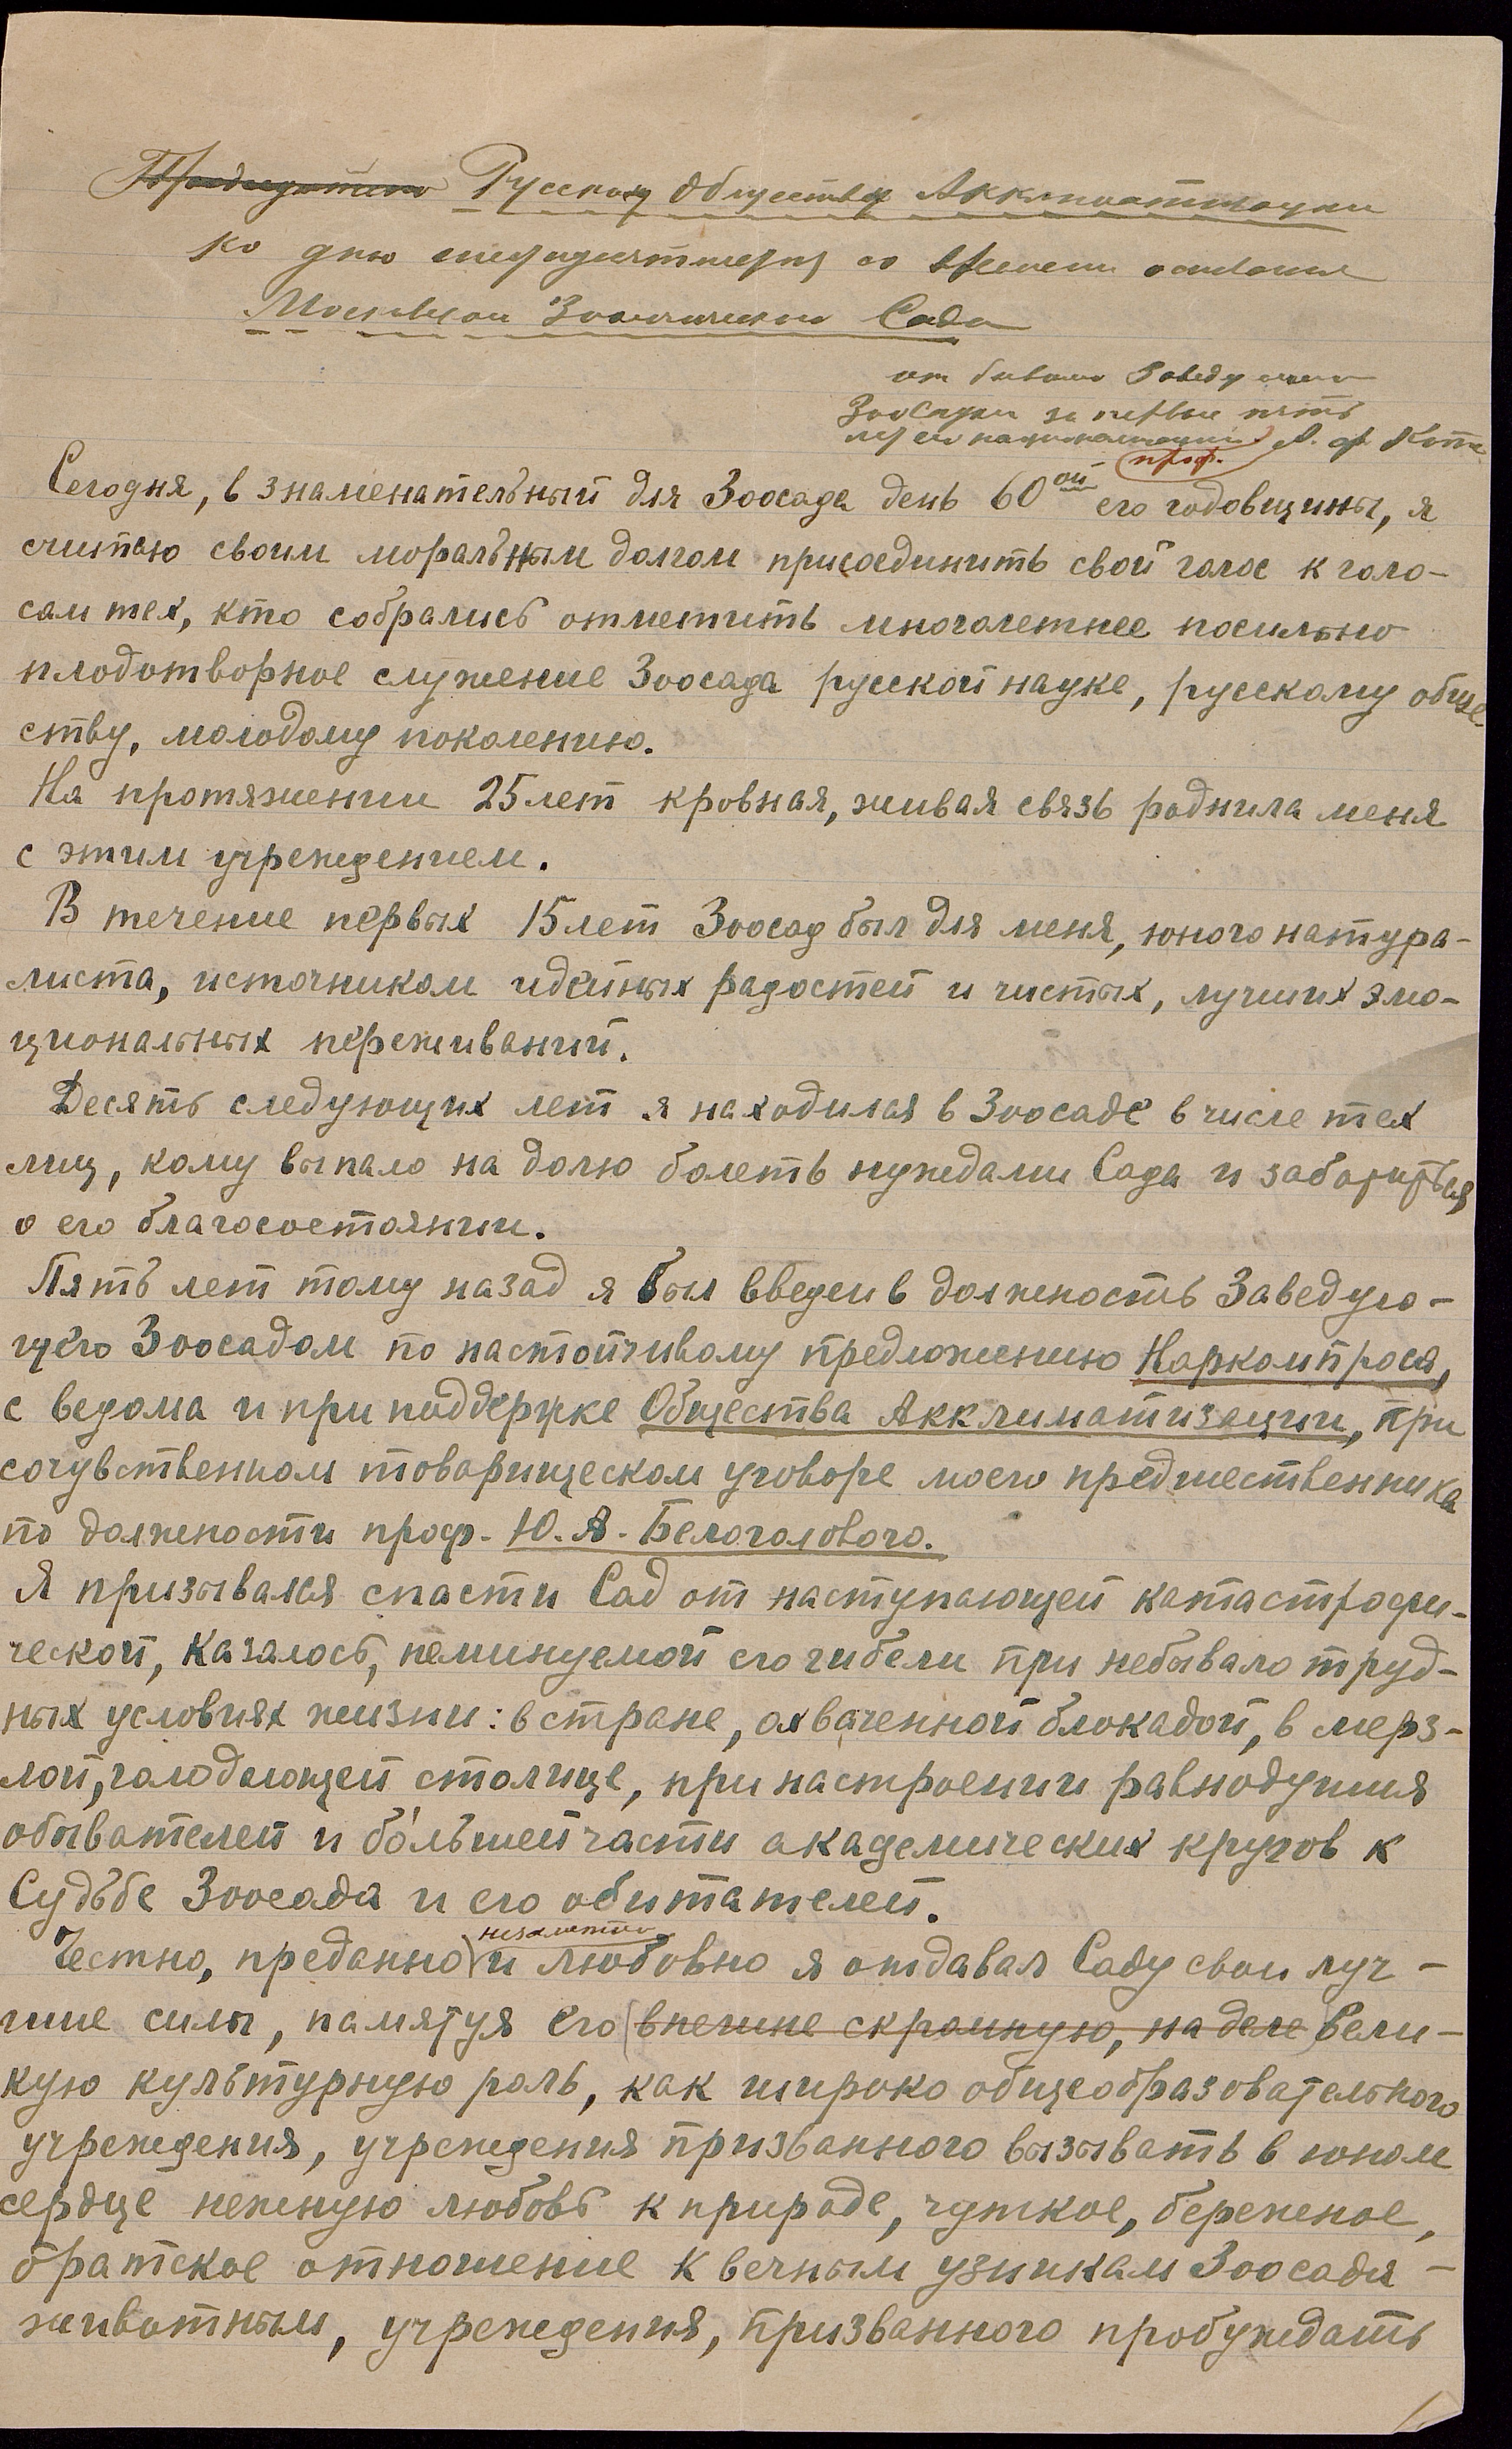 Председателю Русскому Обществу Акклиматизации
ко дню шестидесятилетия со времени основания
Московского Зоологического Сада
от бывшего Заведующего
Зоосадом за первые пять
лет его национализации. проф. А. Ф. Котс
Сегодня, в знаменательный для Зоосада день 60ой его годовщины, я
считаю своим моральным долгом присоединить свой голос к голо-
сам тех, кто собрались отметить многолетнее посильно
плодотворное служение Зоосада русской науке, русскому обще
ству, молодому поколению.
На протяжении 25 лет кровная, живая связь роднила меня
с этим учреждением.
В течение первых 15 лет Зоосад был для меня, юного натура-
листа, источником идейных радостей и чистых, лучших эмо-
циональных переживаний.
Десять следующих лет я находился в Зоосаде в числе тех
лиц, кому выпало на долю болеть нуждами Сада и заботиться
о его благосостоянии.
Пять лет тому назад я был введен в должность Заведую-
щего Зоосадом по настойчивому предложению Наркомпроса,
с ведома и при поддержке Общества Акклиматизации, при
сочувственном товарищеском уговоре моего предшественника
по должности проф. Ю. А. Белоголового.
Я призывался спасти Сад от наступающей катастрофи-
ческой, казалось, неминуемой его гибели при небывало труд-
ных условиях жизни: в стране, охваченной блокадой, в мерз-
лой, голодающей столице, при настроении равнодушия
обывателей и бо́льшей части академических кругов к
Судьбе Зоосада и его обитателей.
Честно, преданно и любовно я отдавал Саду свои луч-
шие силы, памятуя его (внешне скромную, на деле) вели-
кую культурную роль, как широко общеобразовательного
учреждения, учреждения призванного вызывать в юном
сердце нежную любовь к природе, чуткое, бережное,
братское отношение к вечным узникам Зоосада -
животным, учреждения, призванного пробуждать